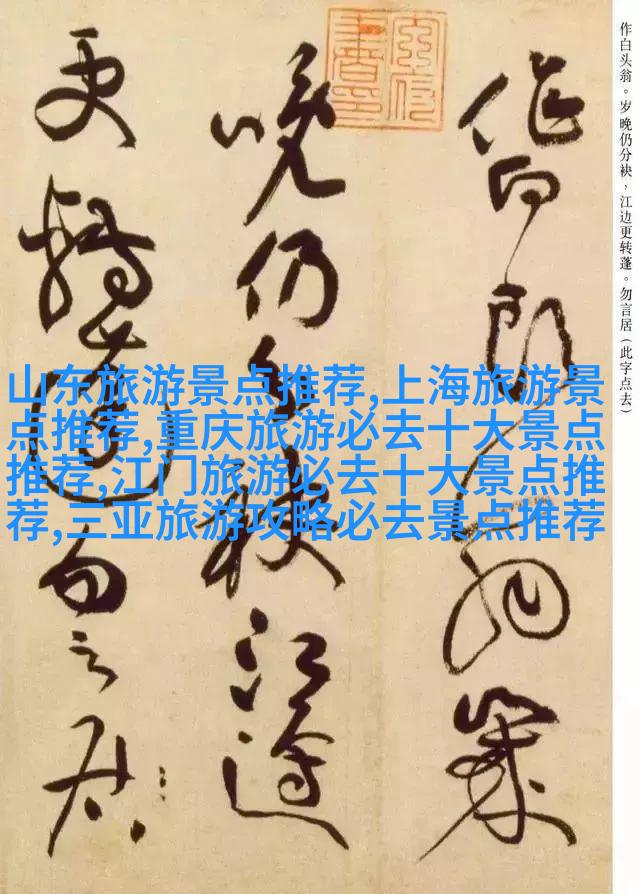 作白头翁。岁晚仍分袂，江边更转蓬。勿言居（此字点去）
作白头翁岁
晚仍分袂江边
更转蓬勿言居
山东旅游景点推荐,上海旅游景
点推荐,重庆旅游必去十大景点
推荐,江门旅游必去十大景点推
荐,三亚旅游攻略必去景点推荐